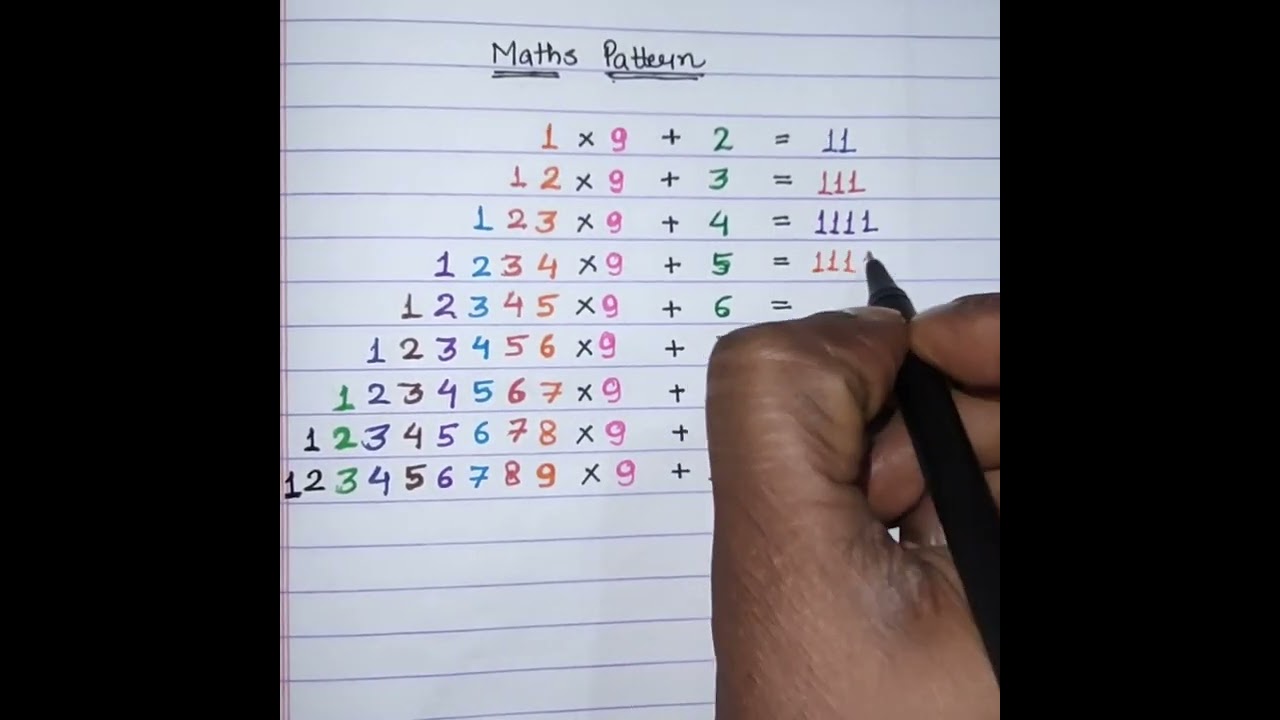 Maths Pattern
1 × 9 + 2 = 11
12 × 9 + 3 = 111
123 × 9 + 4 = 1111
1234 × 9 + 5 = 111
12345 × 9 + 6 =
123456 × 9 +
1234567 × 9 +
12345678 × 9 +
123456789 × 9 +